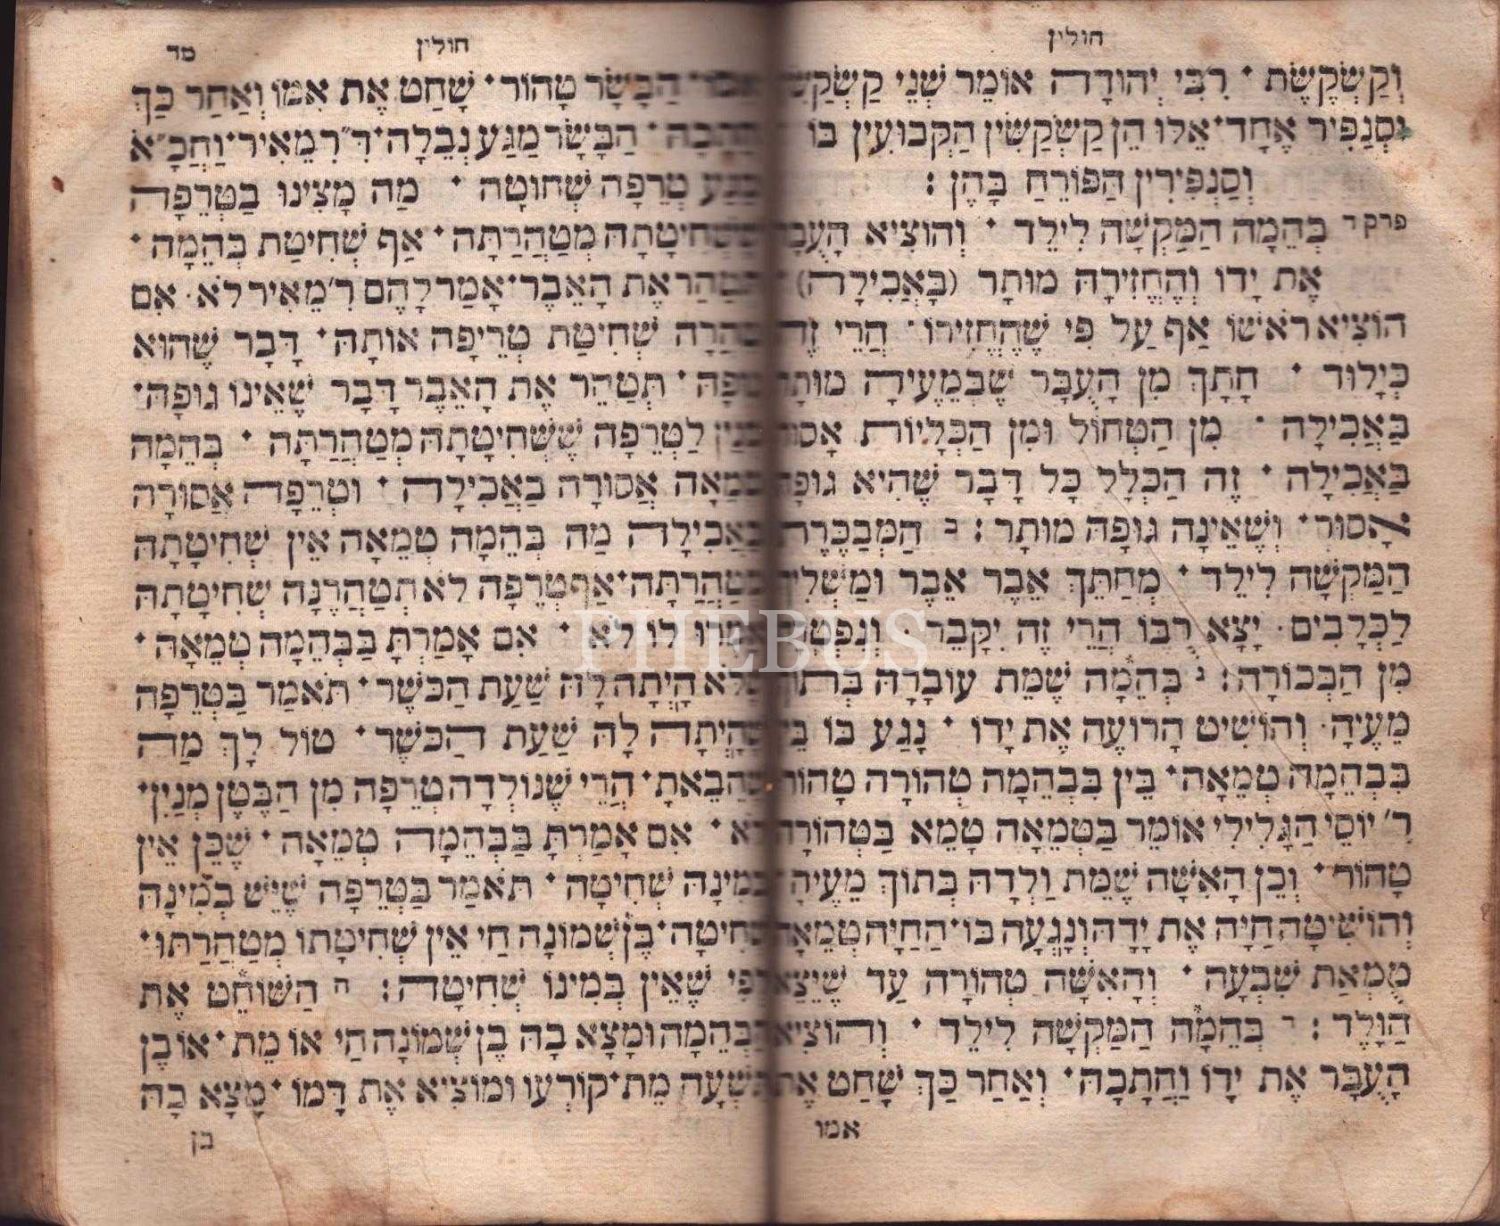 חולין
וְקַשְׂקֶשֶׂת · רִבִּי יְהוּדָה אוֹמֵר שְׁנֵי
וּסְנַפִּיר אֶחָד · אֵלּוּ הֵן קַשְׂקַשִּׂין הַקְּבוּעִין בּוֹ
וְסַנְפִּירִין הַפּוֹרֵחַ בָּהֶן :
פרק ד בְּהֵמָה הַמַּקְשָׁה לֵילֵד · וְהוֹצִיא הָעֻבָּר
אֶת יָדוֹ וְהֶחֱזִירָהּ מוּתָּר (בָּאֲכִילָה) ·
הוֹצִיא רֹאשׁוֹ אַף עַל פִּי שֶׁהֶחֱזִירוֹ · הֲרֵי זֶה
כְּיָלוּד · חָתָךְ מִן הָעֻבָּר שֶׁבְּמֵעֶיהָ מוּתָּר
בַּאֲכִילָה · מִן הַטְּחוֹל וּמִן הַכְּלָיוֹת אָסוּר
בַּאֲכִילָה · זֶה הַכְּלָל כָּל דָּבָר שֶׁהִיא גוּפָהּ
אָסוּר · וְשֶׁאֵינָהּ גּוּפָהּ מוּתָּר : ב הַמְבַכֶּרֶת
הַמַּקְשָׁה לֵילֵד · מְחַתֵּךְ אֵבֶר אֵבֶר וּמַשְׁלִיךְ
לַכְּלָבִים · יָצָא רֻבּוֹ הֲרֵי זֶה יִקָּבֵר · וְנִפְטְרָה
מִן הַבְּכוֹרָה : ג בְּהֵמָה שֶׁמֵּת עוּבָּרָהּ בְּתוֹךְ
מֵעֶיהָ · וְהוֹשִׁיט הָרוֹעֶה אֶת יָדוֹ · נָגַע בּוֹ בֵּין
בִּבְהֵמָה טְמֵאָה · בֵּין בִּבְהֵמָה טְהוֹרָה טָהוֹר
ר׳ יוֹסֵי הַגָּלִילִי אוֹמֵר בַּטְּמֵאָה טָמֵא בַּטְּהוֹרָה
טָהוֹר · וְכֵן הָאִשָּׁה שֶׁמֵּת וַלְדָהּ בְּתוֹךְ מֵעֶיהָ
וְהוֹשִׁיטָה חַיָּה אֶת יָדָהּ וְנָגְעָה בּוֹ · הַחַיָּה טְמֵאָה
טֻמְאַת שִׁבְעָה · וְהָאִשָּׁה טְהוֹרָה עַד שֶׁיֵּצֵא
הַוָּלָד : ד בְּהֵמָה הַמַּקְשָׁה לֵילֵד · וְהוֹצִיא
הָעֻבָּר אֶת יָדוֹ וַחֲתָכָהּ · וְאַחַר כַּךְ שָׁחַט אֶת
אמו
חולין סד
הַבָּשָׂר טָהוֹר · שָׁחַט אֶת אִמּוֹ וְאַחַר כַּךְ
הַבָּשָׂר מַגַּע נְבֵלָה · דִּ״ר מֵאִיר · וַחֲכָ״א
טְרֵפָה שְׁחוּטָה · מַה מָצִינוּ בַּטְּרֵפָה
שֶׁשְּׁחִיטָתָהּ מְטַהֲרַתָּה · אַף שְׁחִיטַת בְּהֵמָה ·
תְּטַהֵר אֶת הָאֵבֶר · אָמַר לָהֶם ר׳ מֵאִיר לֹא · אִם
טִהֲרָה שְׁחִיטַת טְרֵיפָה אוֹתָהּ · דָּבָר שֶׁהוּא
גוּפָהּ · תְּטַהֵר אֶת הָאֵבֶר דָּבָר שֶׁאֵינוֹ גוּפָהּ ·
מִנַּיִן לַטְּרֵפָה שֶׁשְּׁחִיטָתָהּ מְטַהֲרַתָּה · בְּהֵמָה
טְמֵאָה אֲסוּרָה בַאֲכִילָה · וּטְרֵפָה אֲסוּרָה
בַאֲכִילָה מַה בְּהֵמָה טְמֵאָה אֵין שְׁחִיטָתָהּ
מְטַהֲרַתָּה · אַף טְרֵפָה לֹא תְטַהֲרֶנָּה שְׁחִיטָתָהּ
אָמְרוּ לוֹ לֹא · אִם אָמַרְתָּ בַּבְּהֵמָה טְמֵאָה ·
שֶׁלֹּא הָיְתָה לָהּ שַׁעַת הַכֹּשֶׁר · תֹּאמַר בַּטְּרֵפָה
שֶׁהָיְתָה לָהּ שַׁעַת הַכֹּשֶׁר · טוֹל לָךְ מַה
שֶׁהֵבֵאתָ · הֲרֵי שֶׁנּוֹלְדָה טְרֵפָה מִן הַבֶּטֶן מְנַיִן ·
לֹא · אִם אָמַרְתָּ בַּבְּהֵמָה טְמֵאָה · שֶׁכֵּן אֵין
בְּמִינָהּ שְׁחִיטָה · תֹּאמַר בַּטְּרֵפָה שֶׁיֵּשׁ בְּמִינָהּ
שְׁחִיטָה · בֶּן שְׁמוֹנָה חַי אֵין שְׁחִיטָתוֹ מְטַהֲרַתּוּ ·
לְפִי שֶׁאֵין בְּמִינוֹ שְׁחִיטָה : ה הַשּׁוֹחֵט אֶת
הַבְּהֵמָה וּמָצָא בָהּ בֶּן שְׁמוֹנָה חַי אוֹ מֵת · אוֹ בֶן
תִּשְׁעָה מֵת · קוֹרְעוֹ וּמוֹצִיא אֶת דָּמוֹ · מָצָא בָהּ
בן
PHEBUS